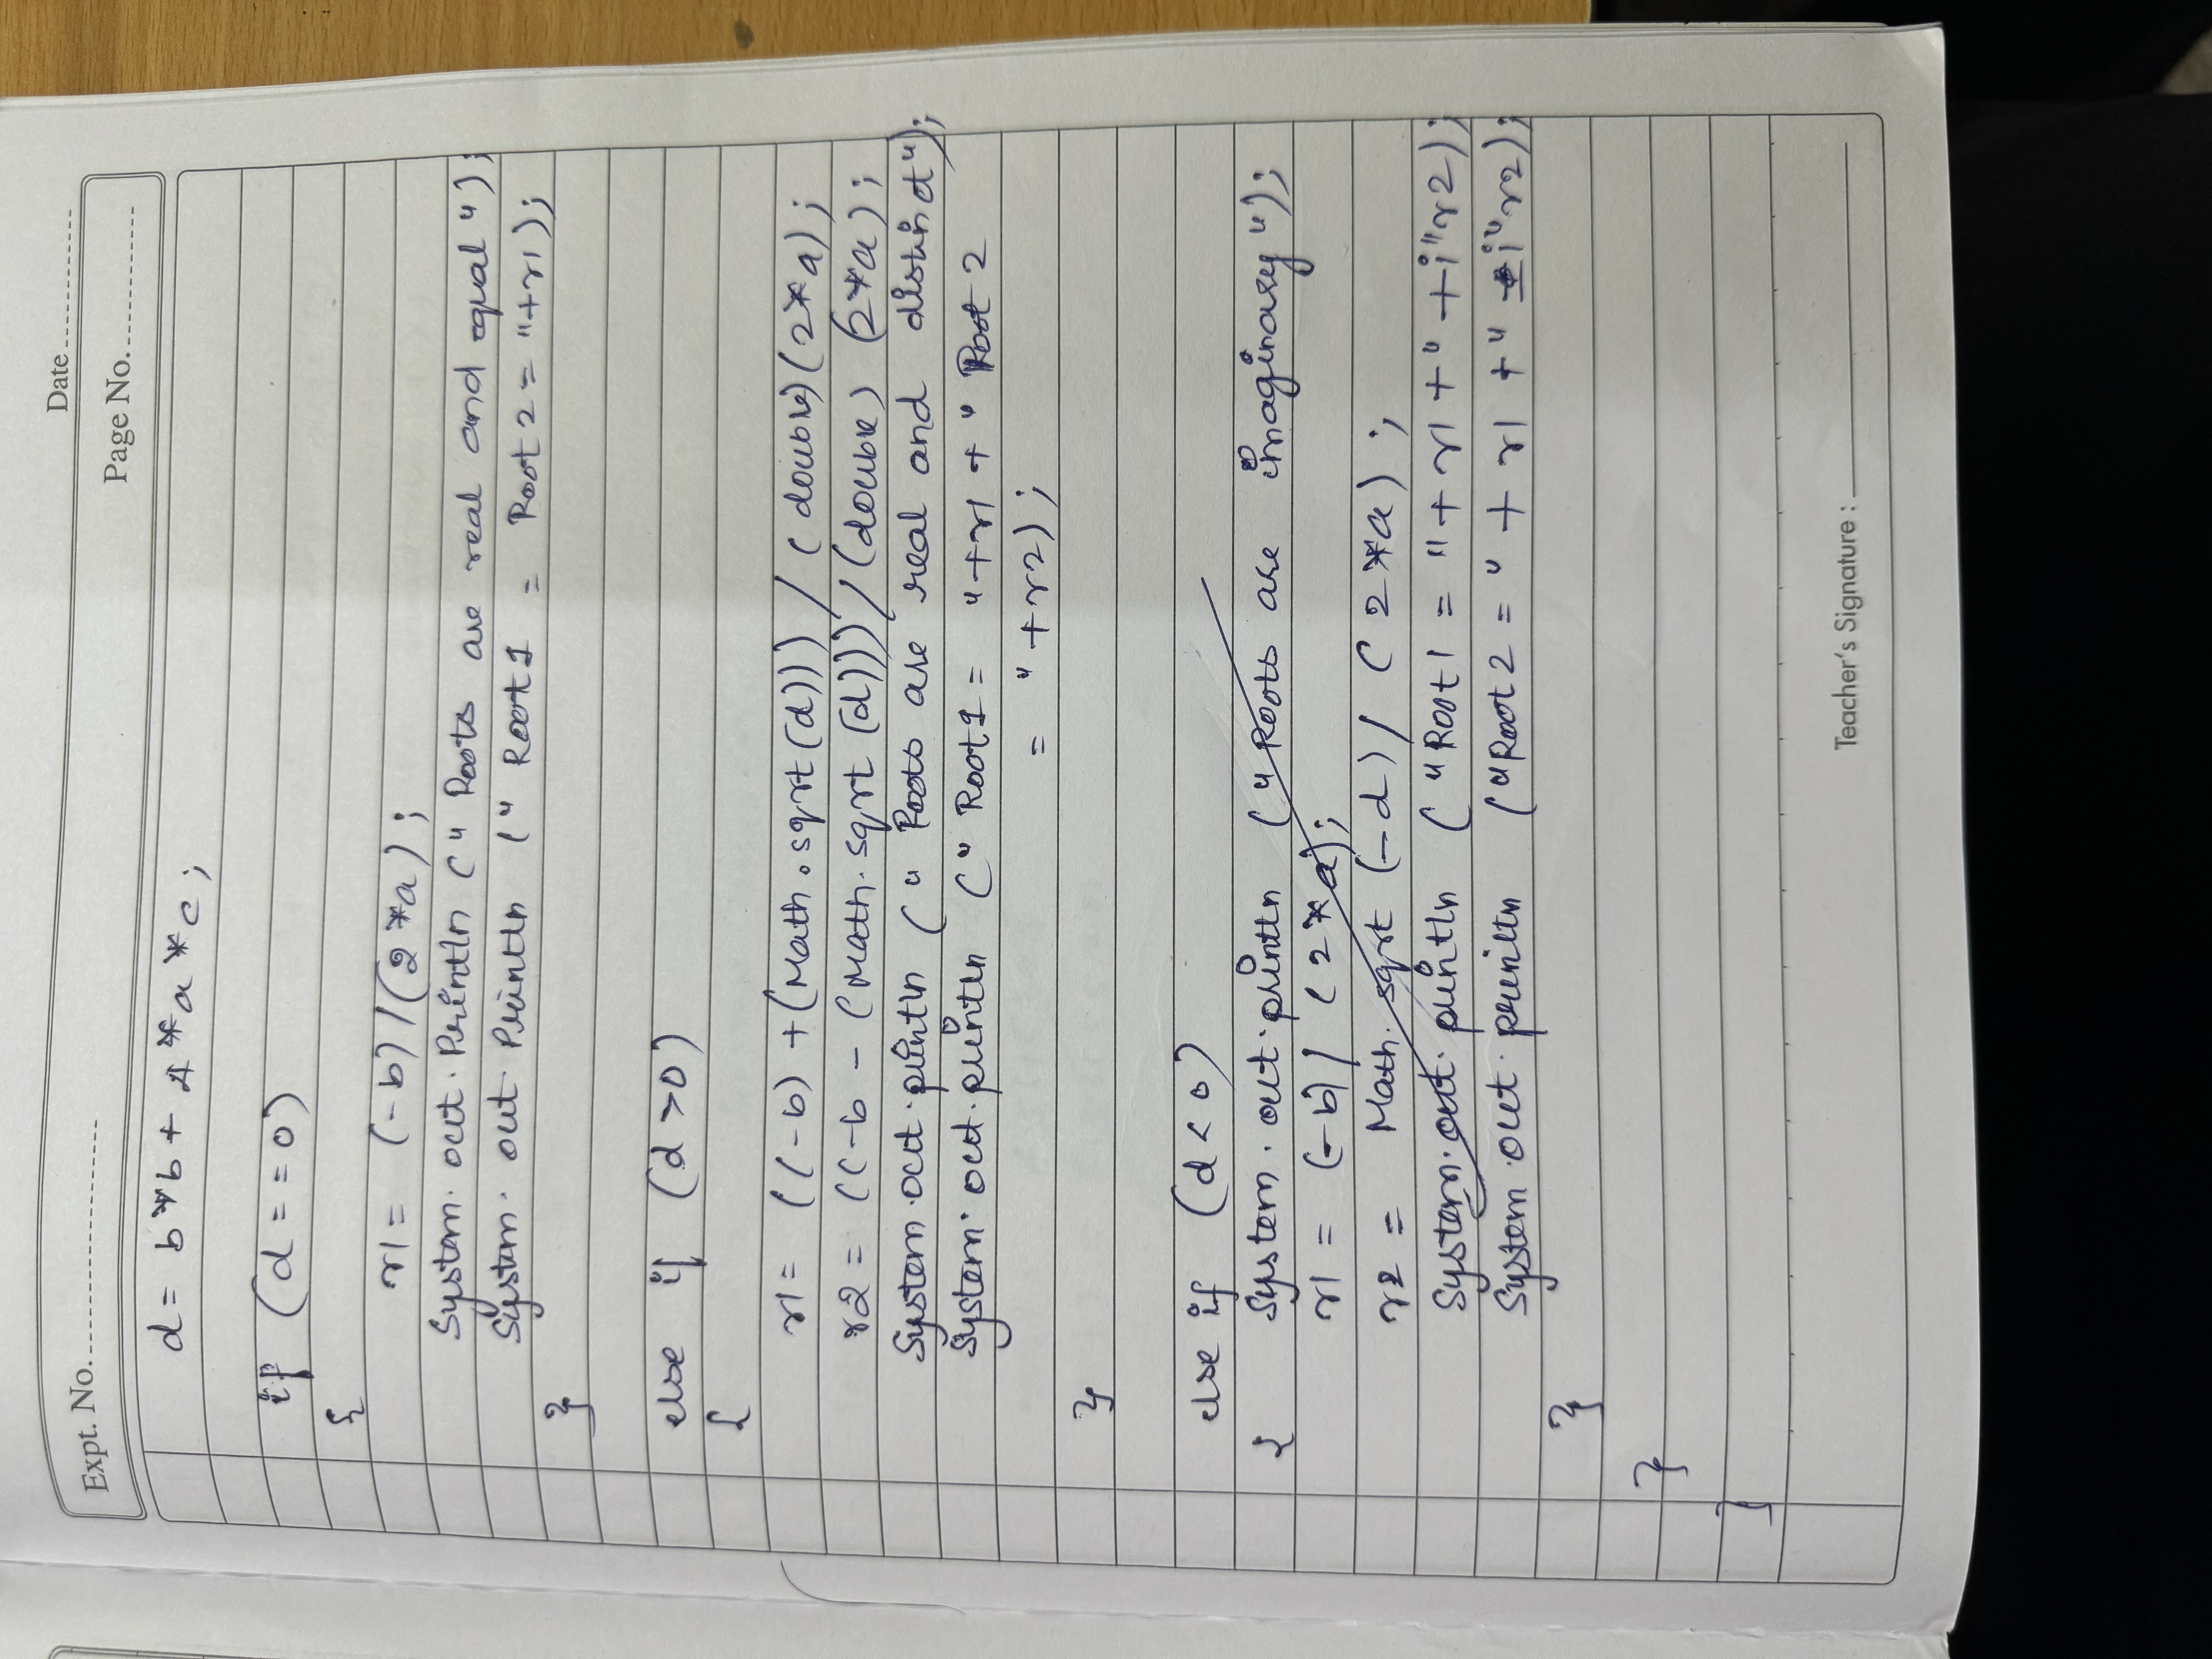 Date
Expt. No.
Page No.
d = b*b + 4*a*c;
if (d==0)
{
r1 = (-b)/(2*a);
System.out.Println ("Roots are real and equal");
System.out Println ("Root1 = Root2 = "+r1);
}
else if (d>0)
{
r1 = ((-b) + (Math.sqrt(d))) / (double)(2*a);
r2 = ((-b - (Math.sqrt(d))) / (double) (2*a);
System.out.println ("Roots are real and distinct");
System.out.println ("Root1 = "+r1 + " Root 2
= "+r2);
}
else if (d<0)
{ System.out.println ("Roots are imaginary");
r1 = (-b) / (2*a);
r2 = Math.sqrt (-d) / (2*a);
System.out.println ("Root1 = "+r1+" +i"r2);
System.out.println ("Root2 = " + r1 +" -i"r2);
}
}
}
Teacher's Signature :